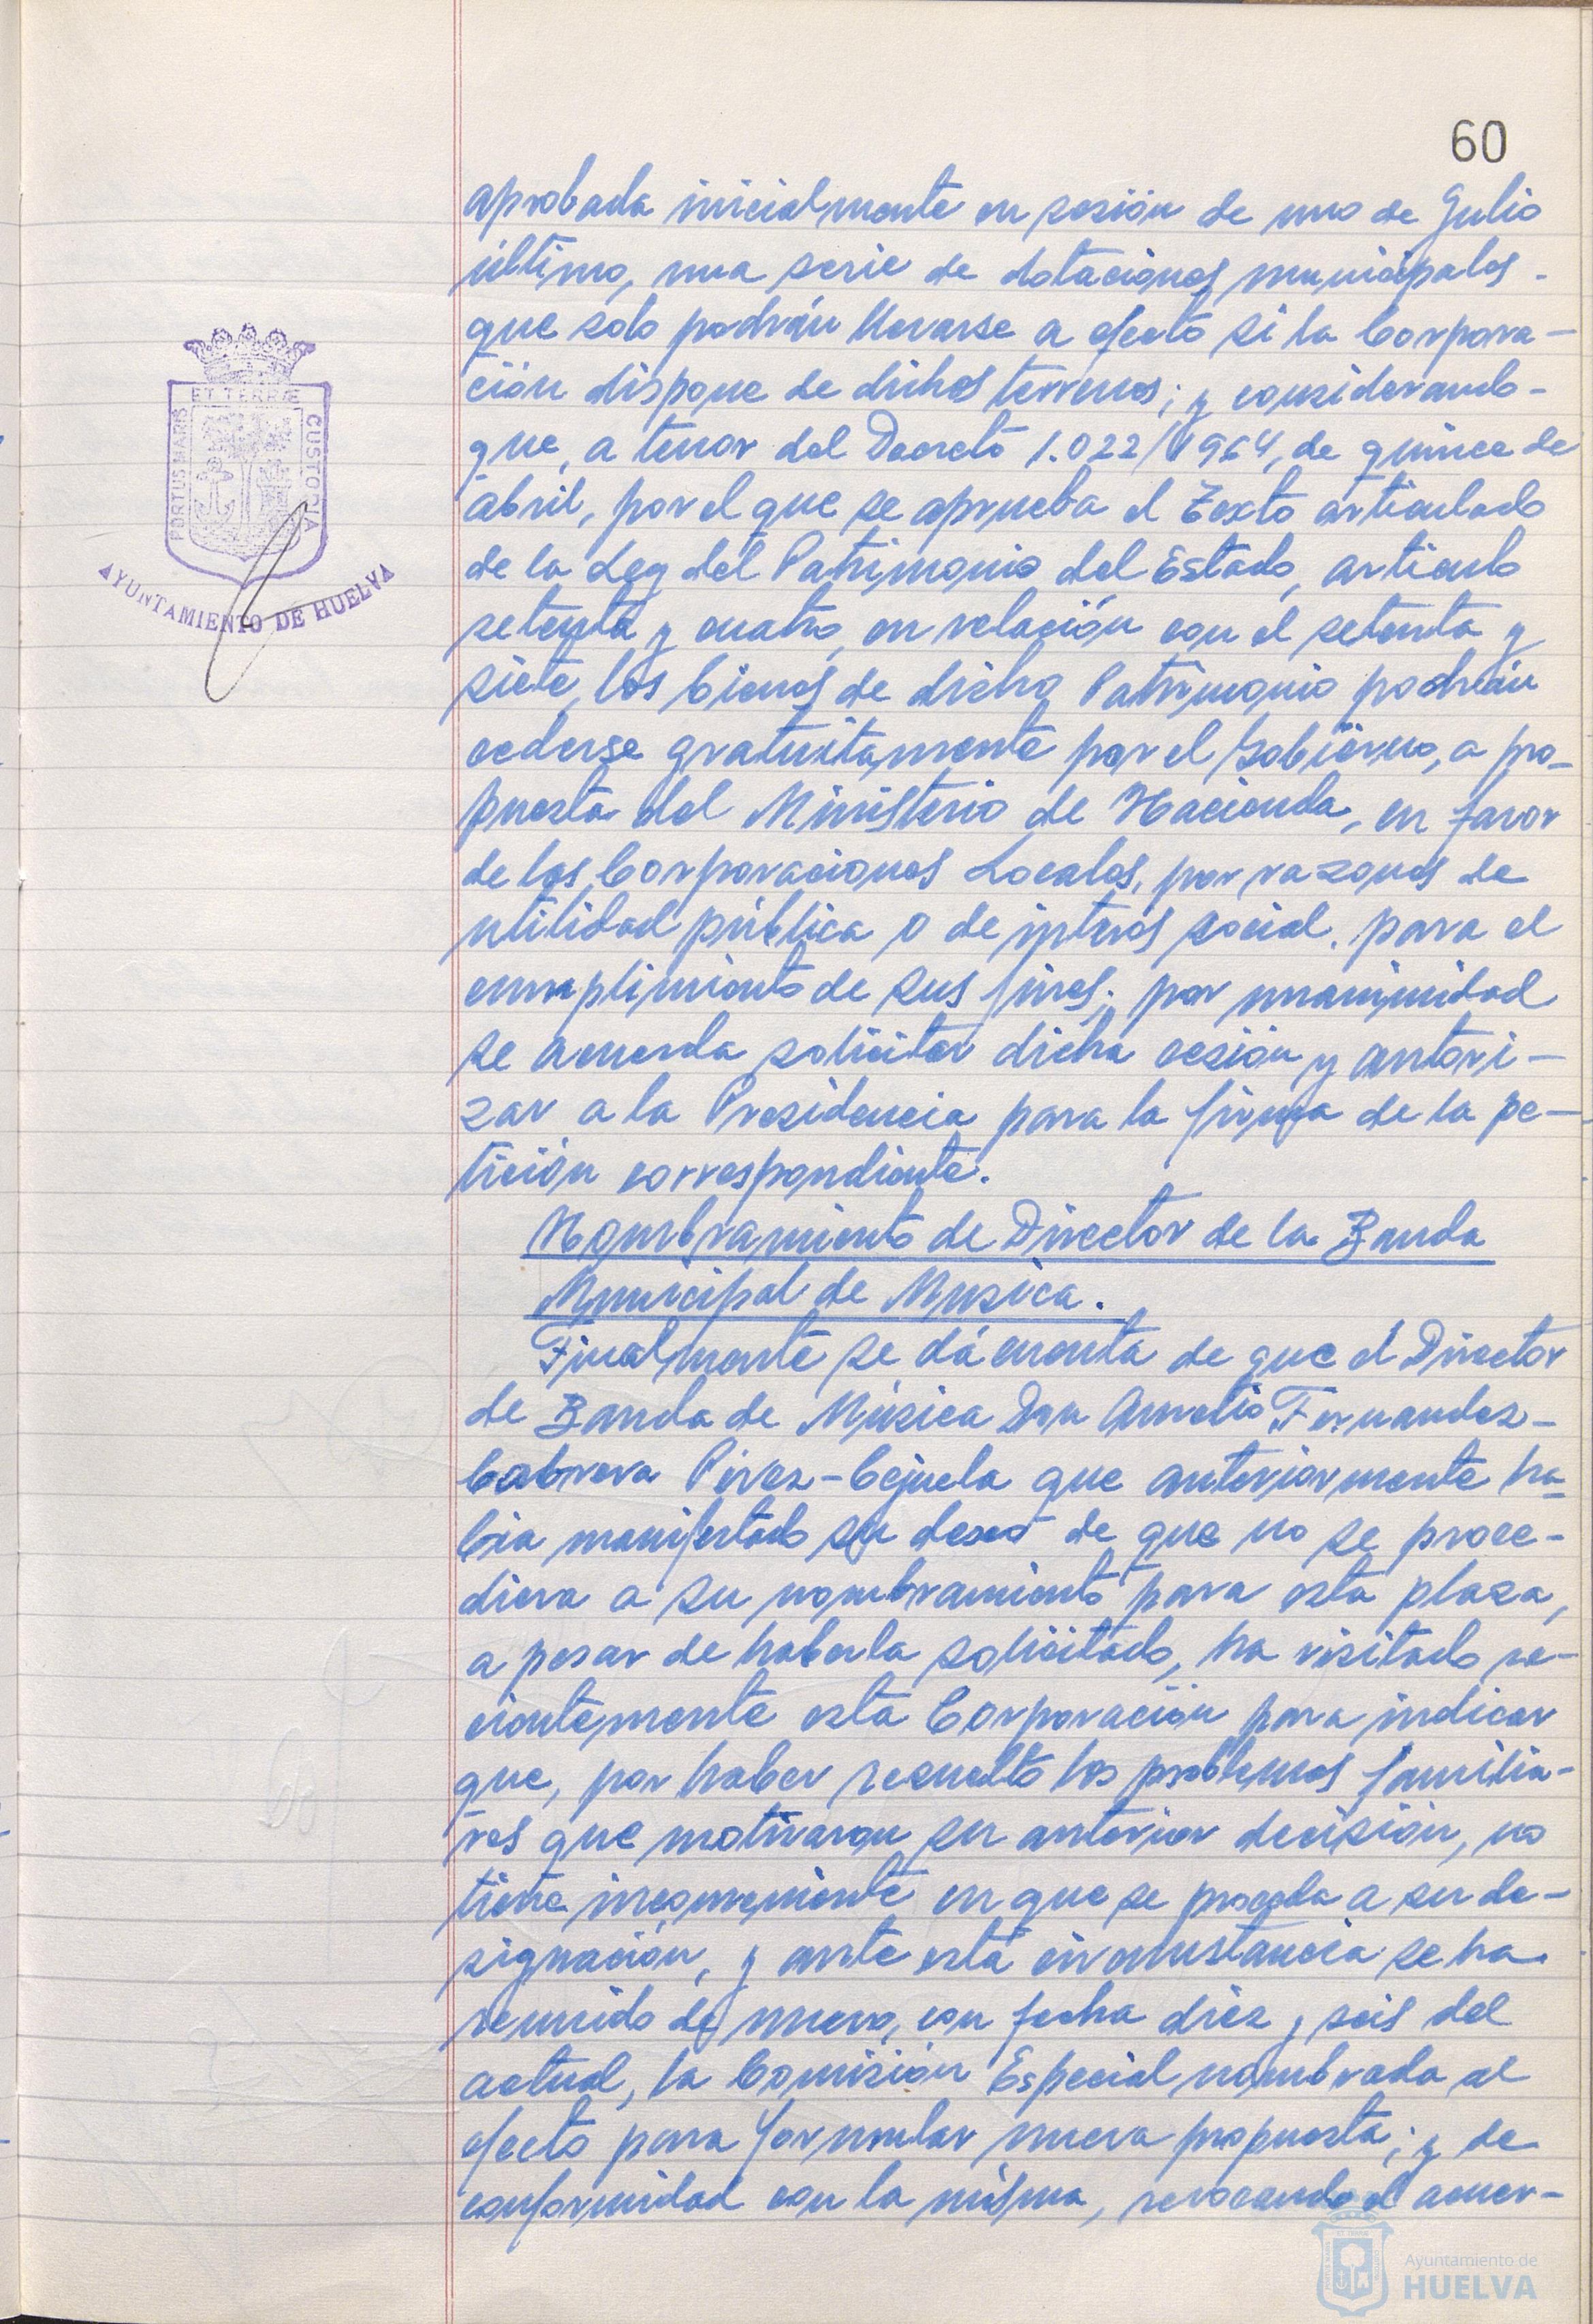 60
aprobada inicialmente en sesión de uno de Julio
último, una serie de dotaciones municipales -
que solo podrán llevarse a efecto si la Corpora-
ción dispone de dichos terrenos; y considerando -
que, a tenor del Decreto 1.022/1964, de quince de
abril, por el que se aprueba el Texto articulado
de la Ley del Patrimonio del Estado, articulo
setenta y cuatro, en relación con el setenta y
siete, los bienes de dicho Patrimonio podrán
cederse gratuitamente por el Gobierno, a pro-
puesta del Ministerio de Hacienda, en favor
de las Corporaciones Locales, por razones de
utilidad pública o de interés social, para el
cumplimiento de sus fines; por unanimidad
se acuerda solicitar dicha cesión y autori-
zar a la Presidencia para la firma de la pe-
tición correspondiente.
Nombramiento de Director de la Banda
Municipal de Musica.
Finalmente se dá cuenta de que el Director
de Banda de Música Don Aurelio Fernandez-
Cabrera Pérez-Cejuela que anteriormente ha-
bia manifestado su deseo de que no se proce-
diera a su nombramiento para esta plaza,
a pesar de haberla solicitado, ha visitado re-
cientemente esta Corporación para indicar
que, por haber resuelto los problemas familia-
res que motivaron su anterior decisión, no
tiene inconveniente en que se proceda a su de-
signación, y ante esta circunstancia se ha
reunido de nuevo, con fecha diez y seis del
actual, la Comisión Especial nombrada al
efecto para formular nueva propuesta; y de
conformidad con la misma, revocando el acuer-
ET TERRÆ
PORTUS MARIS
CUSTODIA
AYUNTAMIENTO DE HUELVA
Ayuntamiento de
HUELVA